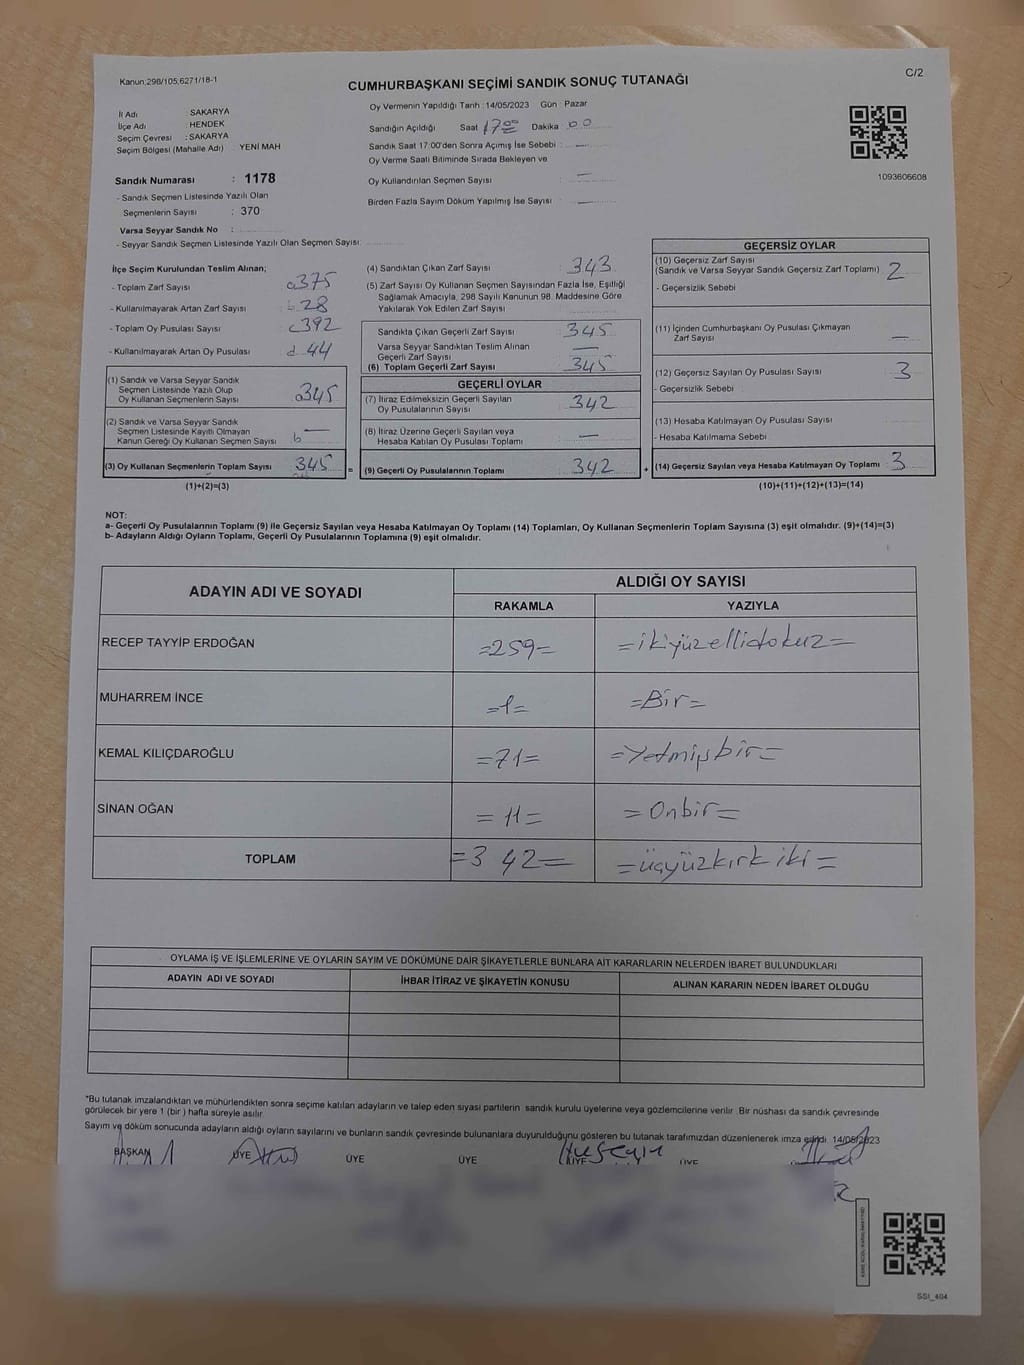 Kanun:298/105,6271/18-1
C/2
CUMHURBAŞKANI SEÇİMİ SANDIK SONUÇ TUTANAĞI
İl Adı SAKARYA
İlçe Adı : HENDEK
Seçim Çevresi : SAKARYA
Seçim Bölgesi (Mahalle Adı) YENİ MAH
Oy Vermenin Yapıldığı Tarih :14/05/2023 Gün : Pazar
Sandığın Açıldığı Saat 17:00 Dakika 00
Sandık Saat 17:00'den Sonra Açımış İse Sebebi : —
Oy Verme Saati Bitiminde Sırada Bekleyen ve
Oy Kullandırılan Seçmen Sayısı : —
Birden Fazla Sayım Döküm Yapılmış İse Sayısı : —
1093606608
Sandık Numarası : 1178
- Sandık Seçmen Listesinde Yazılı Olan
Seçmenlerin Sayısı : 370
Varsa Seyyar Sandık No :
- Seyyar Sandık Seçmen Listesinde Yazılı Olan Seçmen Sayısı:
İlçe Seçim Kurulundan Teslim Alınan;
- Toplam Zarf Sayısı a 375
- Kullanılmayarak Artan Zarf Sayısı b 28
- Toplam Oy Pusulası Sayısı c 392
- Kullanılmayarak Artan Oy Pusulası d 44
(1) Sandık ve Varsa Seyyar Sandık
Seçmen Listesinde Yazılı Olup
Oy Kullanan Seçmenlerin Sayısı a 345
(2) Sandık ve Varsa Seyyar Sandık
Seçmen Listesinde Kayıtlı Olmayan
Kanun Gereği Oy Kullanan Seçmen Sayısı b —
(3) Oy Kullanan Seçmenlerin Toplam Sayısı 345 =
(1)+(2)=(3)
(4) Sandıktan Çıkan Zarf Sayısı : 343
(5) Zarf Sayısı Oy Kullanan Seçmen Sayısından Fazla İse, Eşitliği
Sağlamak Amacıyla, 298 Sayılı Kanunun 98. Maddesine Göre
Yakılarak Yok Edilen Zarf Sayısı
Sandıkta Çıkan Geçerli Zarf Sayısı : 345
Varsa Seyyar Sandıktan Teslim Alınan
Geçerli Zarf Sayısı —
(6) Toplam Geçerli Zarf Sayısı : 345
GEÇERLİ OYLAR
(7) İtiraz Edilmeksizin Geçerli Sayılan
Oy Pusulalarının Sayısı : 342
(8) İtiraz Üzerine Geçerli Sayılan veya
Hesaba Katılan Oy Pusulası Toplamı : —
(9) Geçerli Oy Pusulalarının Toplamı : 342 +
GEÇERSİZ OYLAR
(10) Geçersiz Zarf Sayısı
(Sandık ve Varsa Seyyar Sandık Geçersiz Zarf Toplamı) 2
- Geçersizlik Sebebi
(11) İçinden Cumhurbaşkanı Oy Pusulası Çıkmayan
Zarf Sayısı —
(12) Geçersiz Sayılan Oy Pusulası Sayısı : 3
- Geçersizlik Sebebi
(13) Hesaba Katılmayan Oy Pusulası Sayısı
- Hesaba Katılmama Sebebi
(14) Geçersiz Sayılan veya Hesaba Katılmayan Oy Toplamı : 3
(10)+(11)+(12)+(13)=(14)
NOT:
a- Geçerli Oy Pusulalarının Toplamı (9) ile Geçersiz Sayılan veya Hesaba Katılmayan Oy Toplamı (14) Toplamları, Oy Kullanan Seçmenlerin Toplam Sayısına (3) eşit olmalıdır. (9)+(14)=(3)
b- Adayların Aldığı Oyların Toplamı, Geçerli Oy Pusulalarının Toplamına (9) eşit olmalıdır.
ADAYIN ADI VE SOYADI ALDIĞI OY SAYISI
RAKAMLA YAZIYLA
RECEP TAYYİP ERDOĞAN =259= =ikiyüzellidokuz=
MUHARREM İNCE =1= =Bir=
KEMAL KILIÇDAROĞLU =71= =Yetmişbir=
SİNAN OĞAN =11= =Onbir=
TOPLAM =342= =üçyüzkırkiki=
OYLAMA İŞ VE İŞLEMLERİNE VE OYLARIN SAYIM VE DÖKÜMÜNE DAİR ŞİKAYETLERLE BUNLARA AİT KARARLARIN NELERDEN İBARET BULUNDUKLARI
ADAYIN ADI VE SOYADI İHBAR İTİRAZ VE ŞİKAYETİN KONUSU ALINAN KARARIN NEDEN İBARET OLDUĞU
"Bu tutanak imzalandıktan ve mühürlendikten sonra seçime katılan adayların ve talep eden siyasi partilerin sandık kurulu üyelerine veya gözlemcilerine verilir. Bir nüshası da sandık çevresinde
görülecek bir yere 1 (bir ) hafta süreyle asılır.
Sayım ve döküm sonucunda adayların aldığı oyların sayılarını ve bunların sandık çevresinde bulunanlara duyurulduğunu gösteren bu tutanak tarafımızdan düzenlenerek imza edildi. 14/05/2023
BAŞKAN ÜYE ÜYE ÜYE ÜYE ÜYE
SSI_404